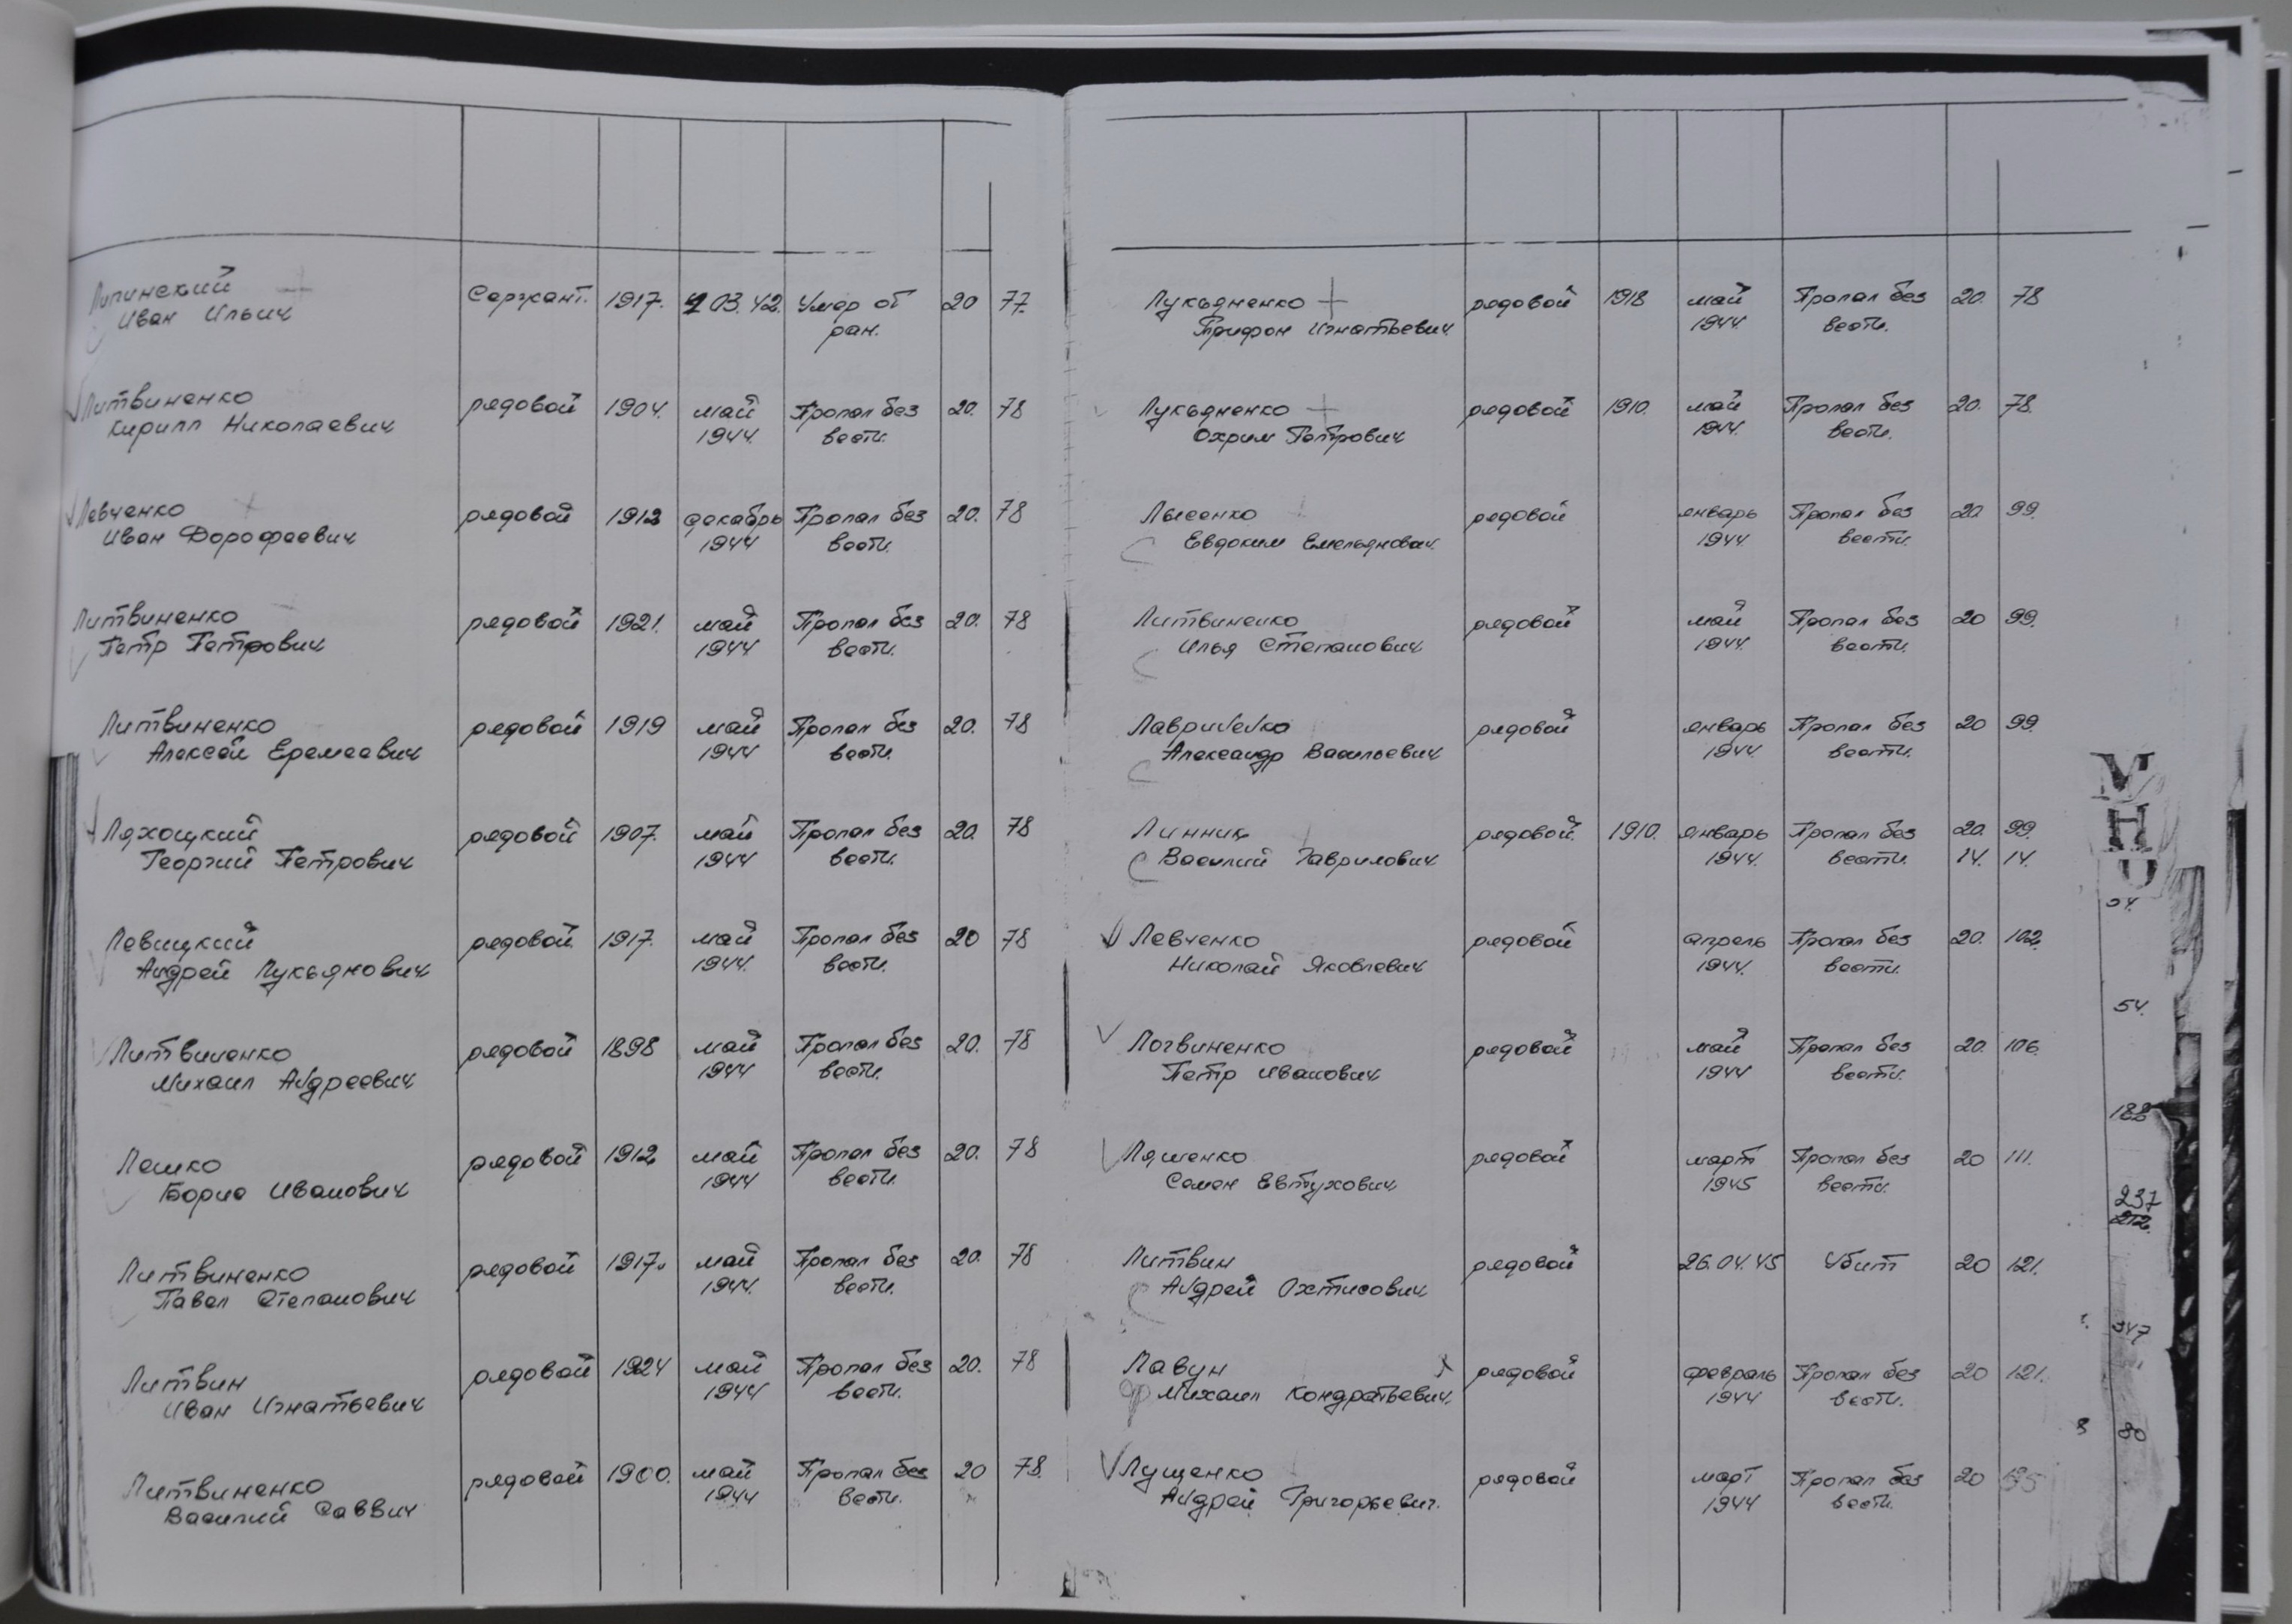 Липинский Сержант. 1917. 03.42. Умер от 20 77.
Иван Ильич ран.
Литвиненко рядовой 1904. май Пропал без 20. 78
Кирилл Николаевич 1944. вести.
Левченко рядовой 1912 декабрь Пропал без 20. 78
Иван Дорофеевич 1944 вести.
Литвиненко рядовой 1921. май Пропал без 20. 78
Петр Петрович 1944 вести.
Литвиненко рядовой 1919 май Пропал без 20. 78
Алексей Еремеевич 1944 вести.
Ляхоцкий рядовой 1907. май Пропал без 20. 78
Георгий Петрович 1944 вести.
Левицкий рядовой 1917. май Пропал без 20 78
Андрей Лукьянович 1944. вести.
Литвиненко рядовой 1898 май Пропал без 20. 78
Михаил Андреевич 1944 вести.
Лешко рядовой 1912 май Пропал без 20. 78
Борис Иванович 1944 вести.
Литвиненко рядовой 1917. май Пропал без 20. 78
Павел Степанович 1944. вести.
Литвин рядовой 1924 май Пропал без 20. 78
Иван Игнатьевич 1944 вести.
Литвиненко рядовой 1900. май Пропал без 20 78.
Василий Саввич 1944 вести.
Лукьяненко рядовой 1918 май Пропал без 20. 78
Трифон Игнатьевич 1944 вести.
Лукьяненко рядовой 1910. май Пропал без 20. 78.
Охрим Петрович 1944. вести.
Лысенко рядовой январь Пропал без 20 99.
Евдоким Емельянович. 1944 вести.
Литвиненко рядовой май Пропал без 20 99.
Илья Степанович 1944. вести.
Лавриненко рядовой январь Пропал без 20 99.
Александр Васильевич 1944. вести.
Линник рядовой. 1910. январь Пропал без 20. 99.
Василий Гаврилович 1944. вести. 14. 14.
Левченко рядовой апрель Пропал без 20. 102.
Николай Яковлевич 1944. вести.
Логвиненко рядовой май Пропал без 20. 106.
Петр Иванович 1944 вести.
Ляшенко рядовой март Пропал без 20 111.
Семен Евтухович 1945 вести.
Литвин рядовой 26.04.45 Убит 20 121.
Андрей Охтисович
Лавун рядовой февраль Пропал без 20 121.
Михаил Кондратьевич. 1944 вести.
Лущенко рядовой март Пропал без 20
Андрей Григорьевич. 1944 вести.
54.
188
237
212.
347
8 80